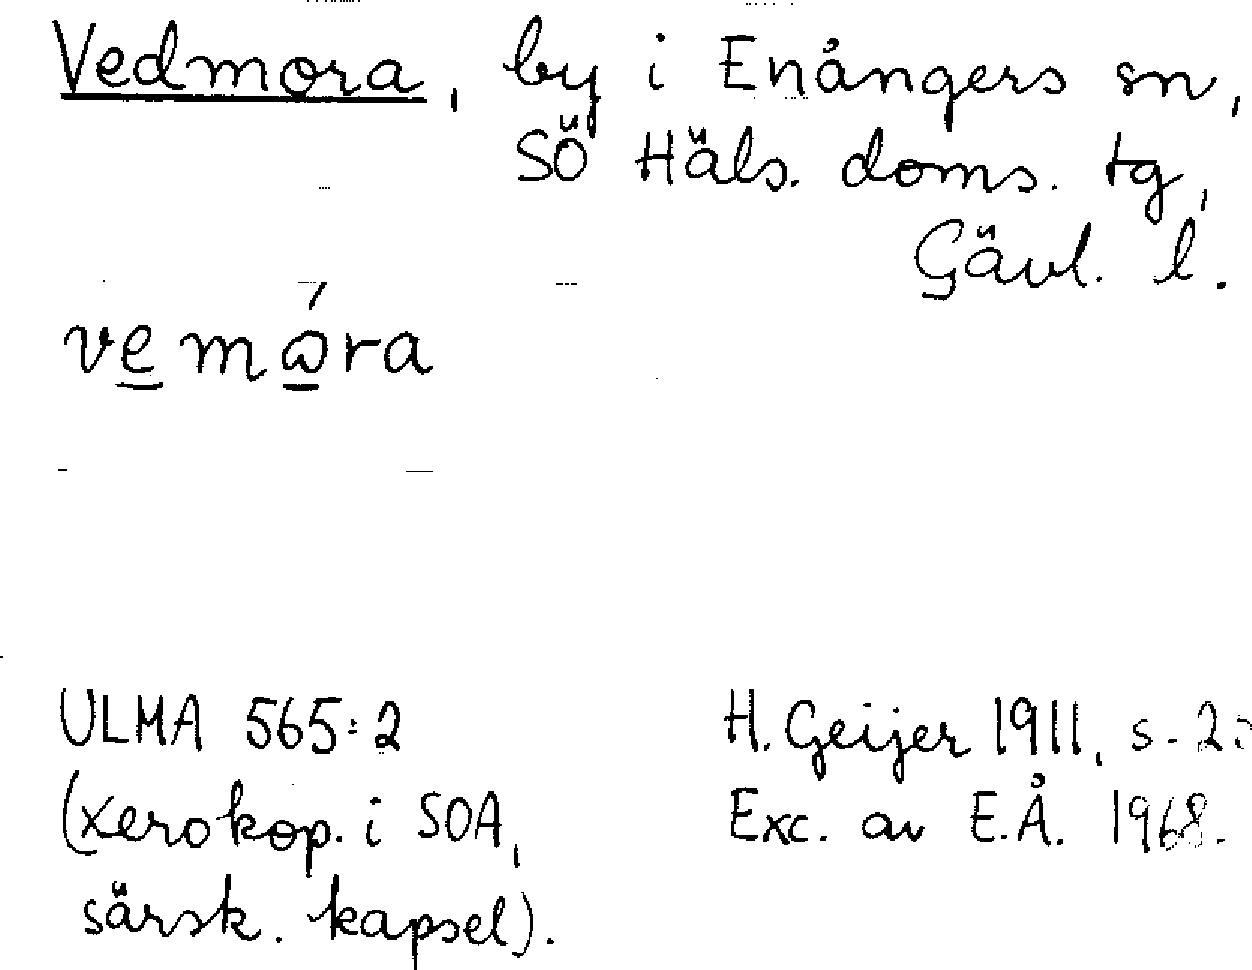 Vedmora, by i Enångers sn,
SÖ Häls. doms. tg,
Gävl. l.
vemɷ́ra
ULMA 565:2
(xerokop. i SOA,
särsk. kapsel).
H. Geijer 1911, s. 2
Exc. av E.Å. 1968.